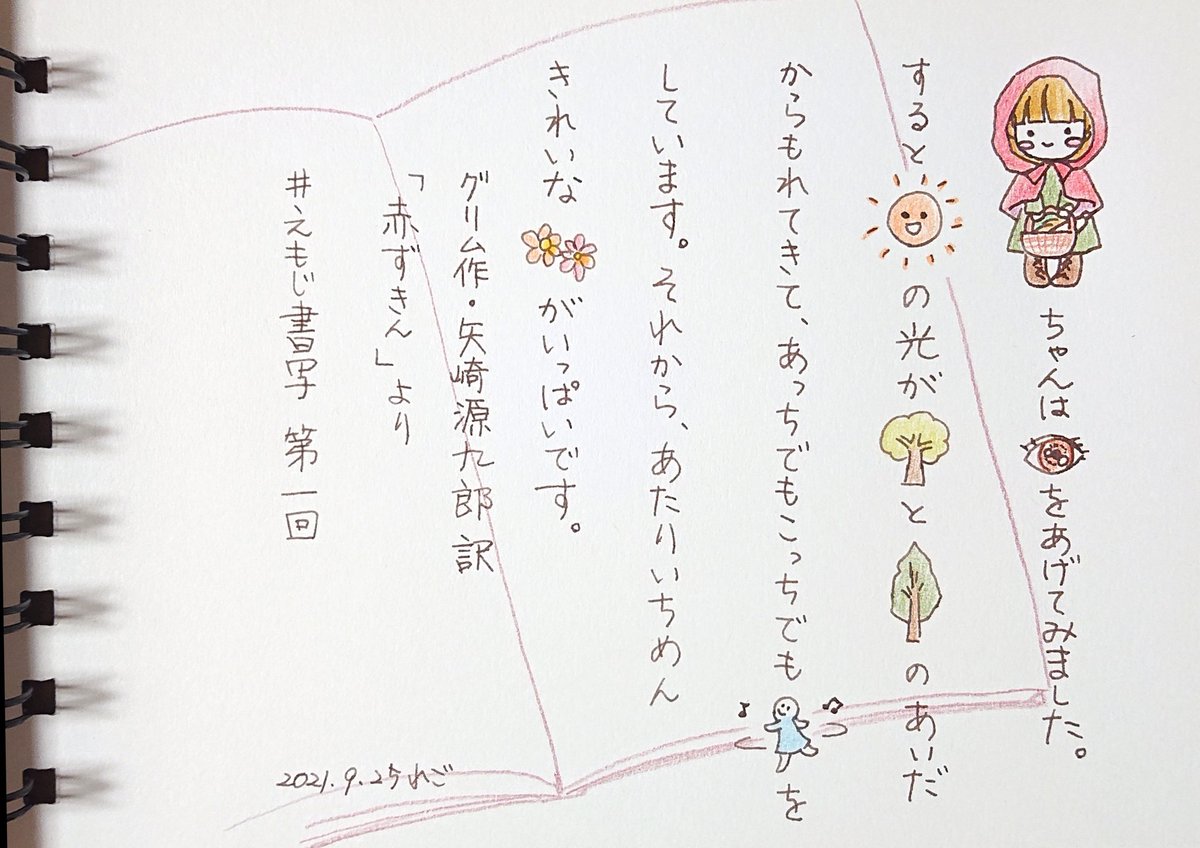 ちゃんは をあげてみました。
すると の光が と のあいだ
からもれてきて、あっちでもこっちでも を
しています。それから、あたりいちめん
きれいな がいっぱいです。
グリム作・矢崎源九郎 訳
「赤ずきん」より
#えもじ書写 第一回
2021.9.25 れご